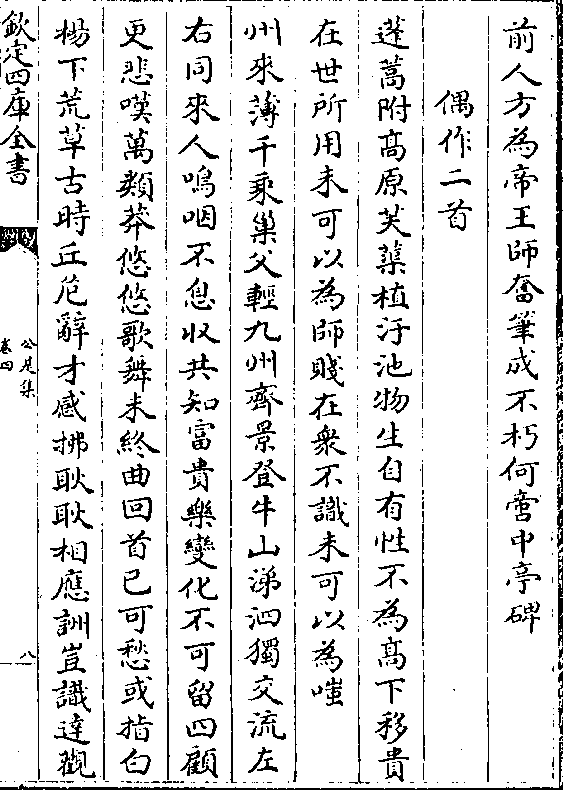 前人方為帝王師奮筆成不朽何啻中亭碑
偶作二首
蓬蒿附髙原芙蕖植汙池物生自有性不為髙下移貴
在世所用未可以為師賤在衆不識未可以為嗤
州來薄千乘巢父輕九州齊景登牛山涕泗獨交流左
右同來人鳴咽不息收共知富貴樂變化不可留四顧
更悲嘆萬類莽悠悠歌舞未終曲回首已可愁或指白
楊下荒草古時丘危辭才感拂耿耿相應詶豈識達觀
欽定四庫全書
公是集
卷四
八